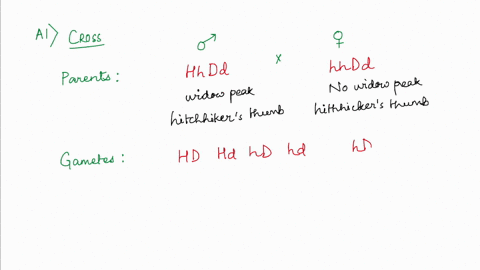 A1> Cross
♂ ♀
Parents : HhDd x hhDd
widow peak No widow peak
hitchhiker's thumb hithhicker's thumb
Gametes : HD Hd hD hd hD